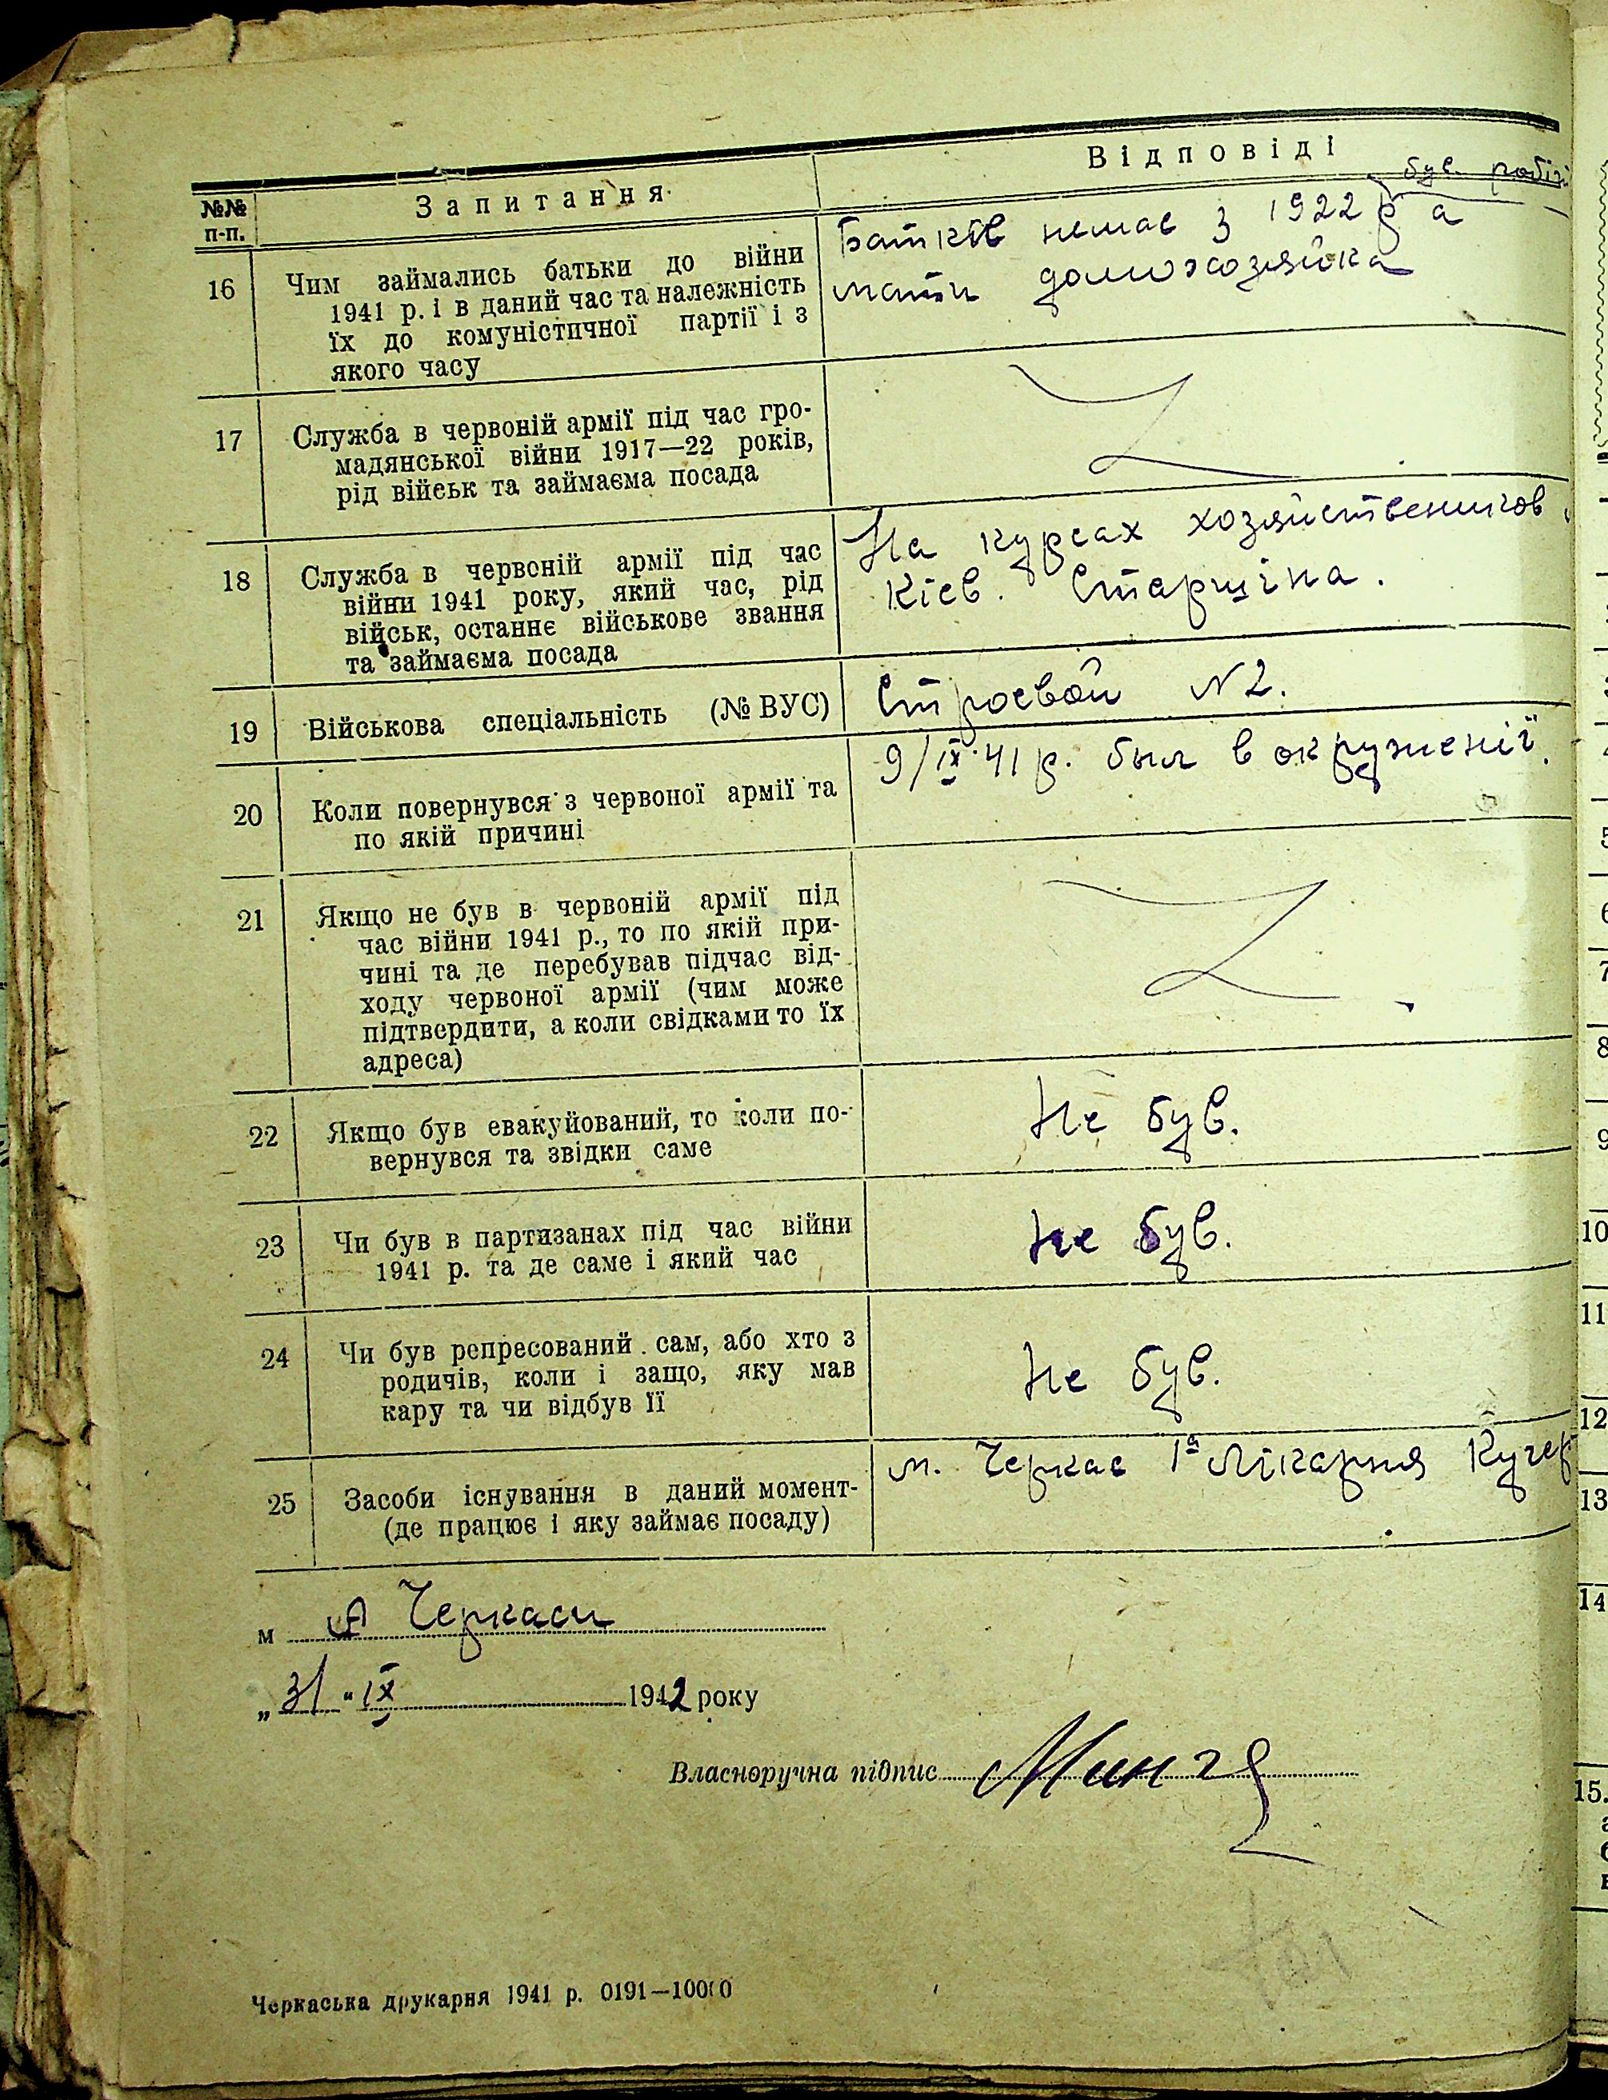 Відповіді
№№ п-п.
Запитання
був. робі
16
Чим займались батьки до війни
1941 р. і в даний час та належність
їх до комуністичної партії і з
якого часу
Батьків немає з 1922 р а
мати домохозяйка
17
Служба в червоній армії під час гро-
мадянської війни 1917—22 років,
рід військ та займаєма посада
18
Служба в червоній армії під час
війни 1941 року, який час, рід
військ, останнє військове звання
та займаєма посада
На курсах хозяйствеников
Кіев. Старшіна.
19
Військова спеціальність (№ ВУС)
Строевой N 2.
20
Коли повернувся з червоної армії та
по якій причині
9/IX-41 р. был в окруженії.
21
Якщо не був в червоній армії під
час війни 1941 р., то по якій при-
чині та де перебував підчас від-
ходу червоної армії (чим може
підтвердити, а коли свідками то їх
адреса)
22
Якщо був евакуйований, то коли по-
вернувся та звідки саме
Не був.
23
Чи був в партизанах під час війни
1941 р. та де саме і який час
Не був.
24
Чи був репресований сам, або хто з
родичів, коли і защо, яку мав
кару та чи відбув її
Не був.
25
Засоби існування в даний момент-
(де працює і яку займає посаду)
м. Черкас 1а Лікарня Кучер
м Черкаси
„31" IX 1942 року
Власноручна підпис
Черкаська друкарня 1941 р. 0191—10000
5
6
7
8
9
10
11
12
13
14
15.